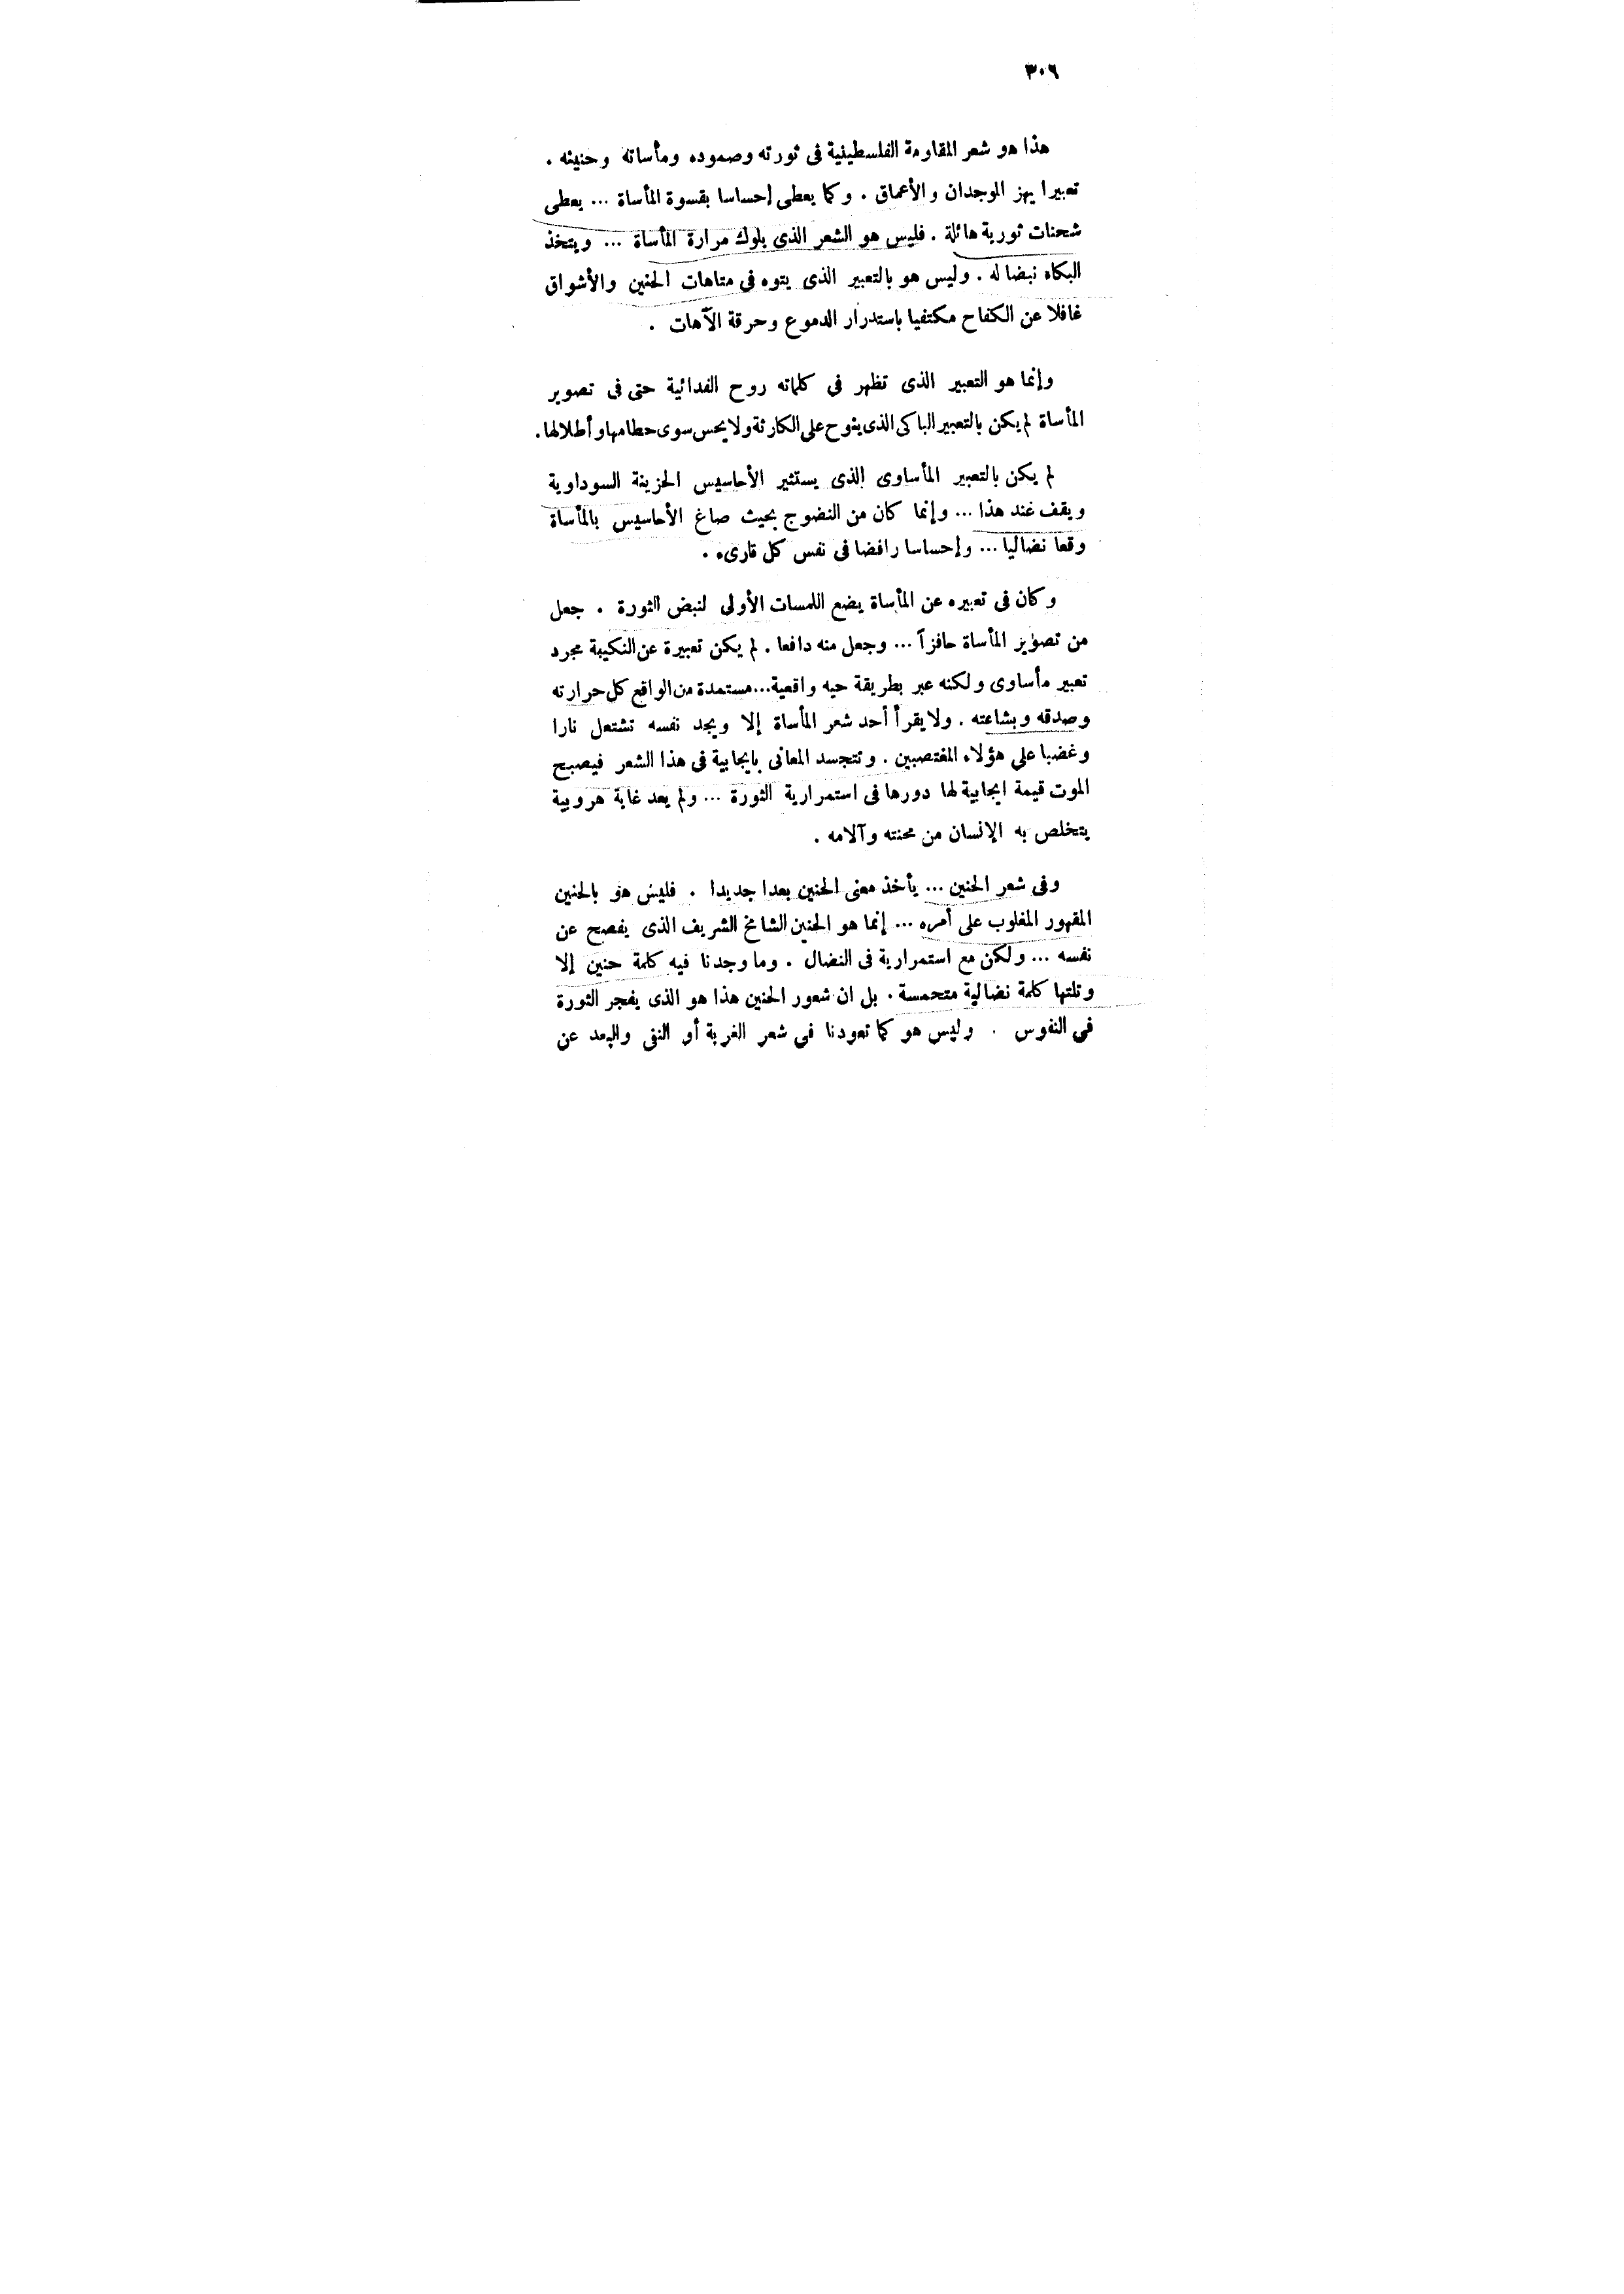 ٣٠٦
هذا هو شعر المقاومة الفلسطينية فى ثورته وصموده ومأساته وحنينه .
تعبيرا يهز الوجدان والأعماق . وكما يعطى إحساسا بقسوة المأساة ... يعطى
شحنات ثورية هائلة . فليس هو الشعر الذى يلوك مرارة المأساة ... ويتخذ
البكاء نبضا له . وليس هو بالتعبير الذى يتوه فى متاهات الحنين والأشواق
غافلا عن الكفاح مكتفيا باستدرار الدموع وحرقة الآهات .
وإنما هو التعبير الذى تظهر فى كلماته روح الفدائية حتى فى تصوير
المأساة لم يكن بالتعبير الباكى الذى ينوح على الكارثة ولا يحس سوى حطامها وأطلالها .
لم يكن بالتعبير المأساوى الذى يستثير الأحاسيس الحزينة السوداوية
ويقف عند هذا ... وإنما كان من النضوج بحيث صاغ الأحاسيس بالمأساة
وقعا نضاليا ... وإحساسا رافضا فى نفس كل قارىء .
وكان فى تعبيره عن المأساة يضع اللمسات الأولى لنبض الثورة . جعل
من تصوير المأساة حافزاً ... وجعل منه دافعا . لم يكن تعبيرة عن النكبة مجرد
تعبير مأساوى ولكنه عبر بطريقة حيه واقعية ... مستمدة من الواقع كل حرارته
وصدقه وبشاعته . ولا يقرأ أحد شعر المأساة إلا ويجد نفسه تشتعل نارا
وغضبا على هؤلاء المغتصبين . وتتجسد المعانى بايجابية فى هذا الشعر فيصبح
الموت قيمة ايجابية لها دورها فى استمرارية الثورة ... ولم يعد غاية هروبية
يتخلص به الإنسان من محنته وآلامه .
وفى شعر الحنين ... يأخذ معنى الحنين بعدا جديدا . فليس هو بالحنين
المقهور المغلوب على أمره ... إنما هو الحنين الشامخ الشريف الذى يفصح عن
نفسه ... ولكن مع استمرارية فى النضال . وما وجدنا فيه كلمة حنين إلا
وتلتها كلمة نضالية متحمسة . بل ان شعور الحنين هذا هو الذى يفجر الثورة
فى النفوس . وليس هو كما تعودنا فى شعر الغربة أو النفى والبعد عن